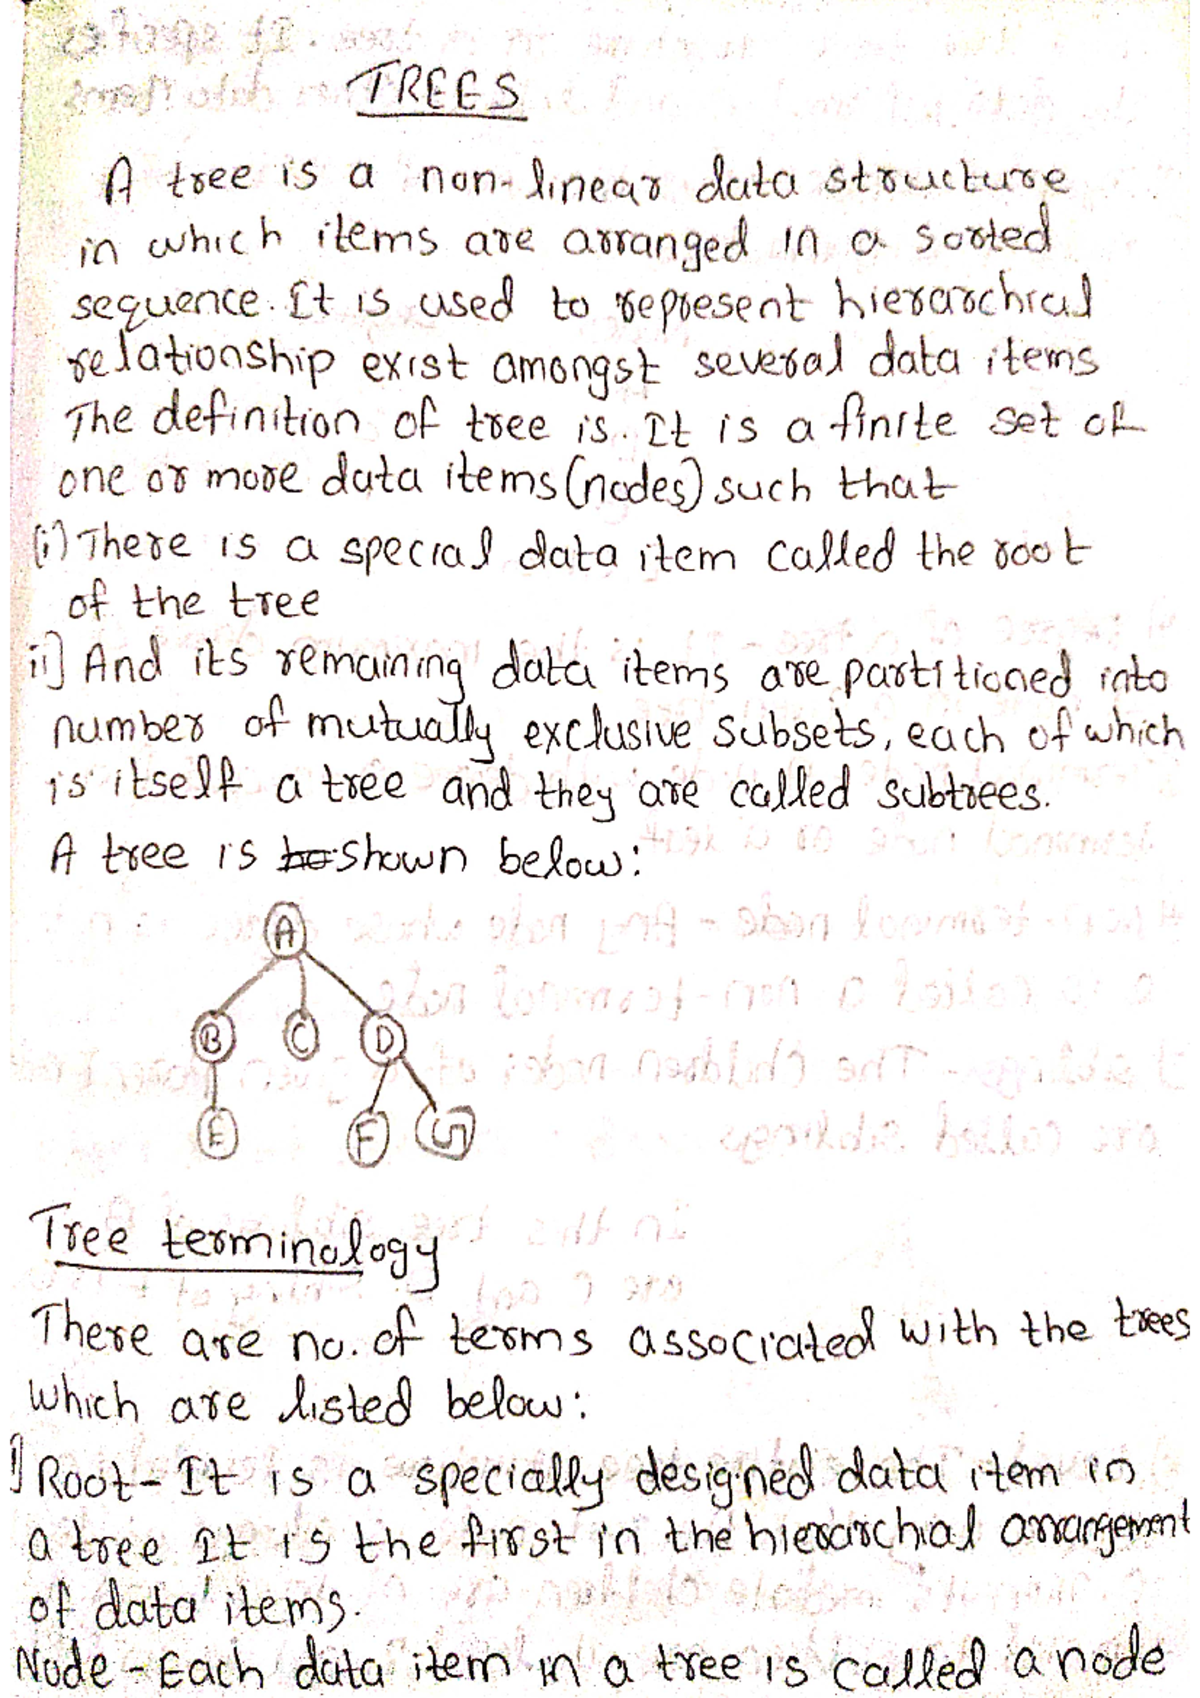 TREES
A tree is a non-linear data structure
in which items are arranged in a sorted
sequence. It is used to represent hierarchial
relationship exist amongst several data items
The definition of tree is. It is a finite set of
one or more data items (nodes) such that
(i) There is a special data item called the root
of the tree
ii] And its remaining data items are partitioned into
number of mutually exclusive subsets, each of which
is itself a tree and they are called subtrees.
A tree is shown below:
A
B C D
E F G
Tree terminology
There are no. of terms associated with the trees
which are listed below:
1] Root- It is a specially designed data item in
a tree It is the first in the hierarchial arrangement
of data items.
Node - Each data item in a tree is called a node